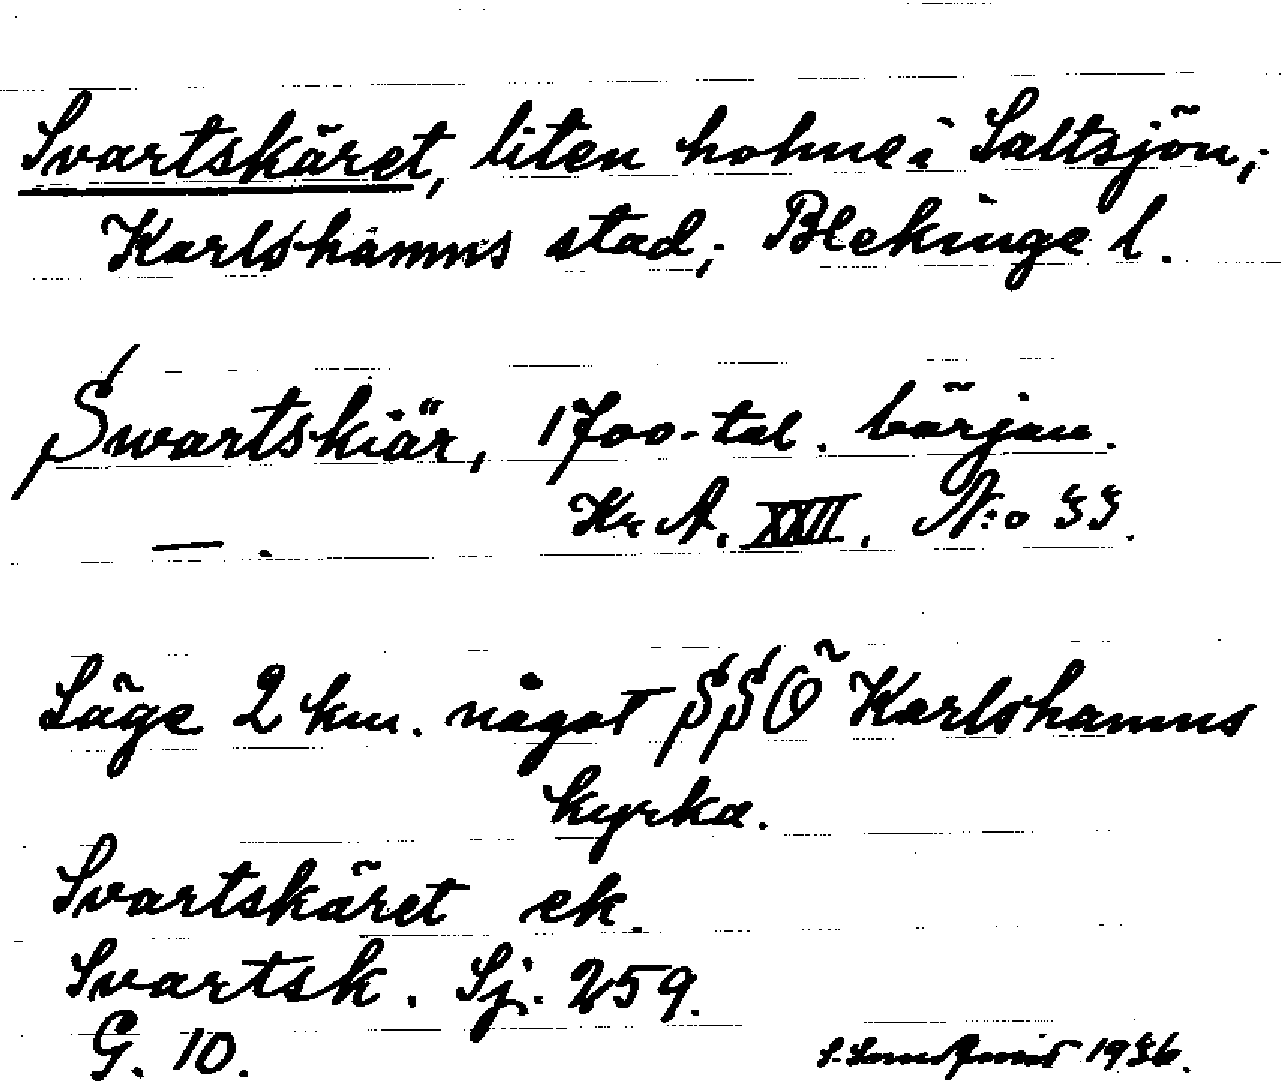 Svartskäret, liten holme i Saltsjön,;
Karlshamns stad; Blekinge l.
Swartskiär, 1700-tal. början.
— . Kr A. XXII. N:o 33.
Läge 2 km. något SSÖ Karlshamns
kyrka.
Svartskäret ek.
Svartsk. Sj. 259.
G. 10.
1936.